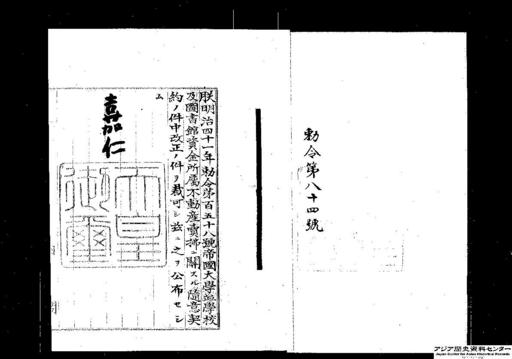 勅令第八十四號
朕明治四十一年勅令第百五十八號帝國大學並學校
及圖書館資金所屬不動産賣拂ニ關スル隨意契
約ノ件中改正ノ件ヲ裁可シ茲ニ之ヲ公布セシ
ム
嘉仁
天皇
御璽
アジア歴史資料センター
Japan Center for Asian Historical Records